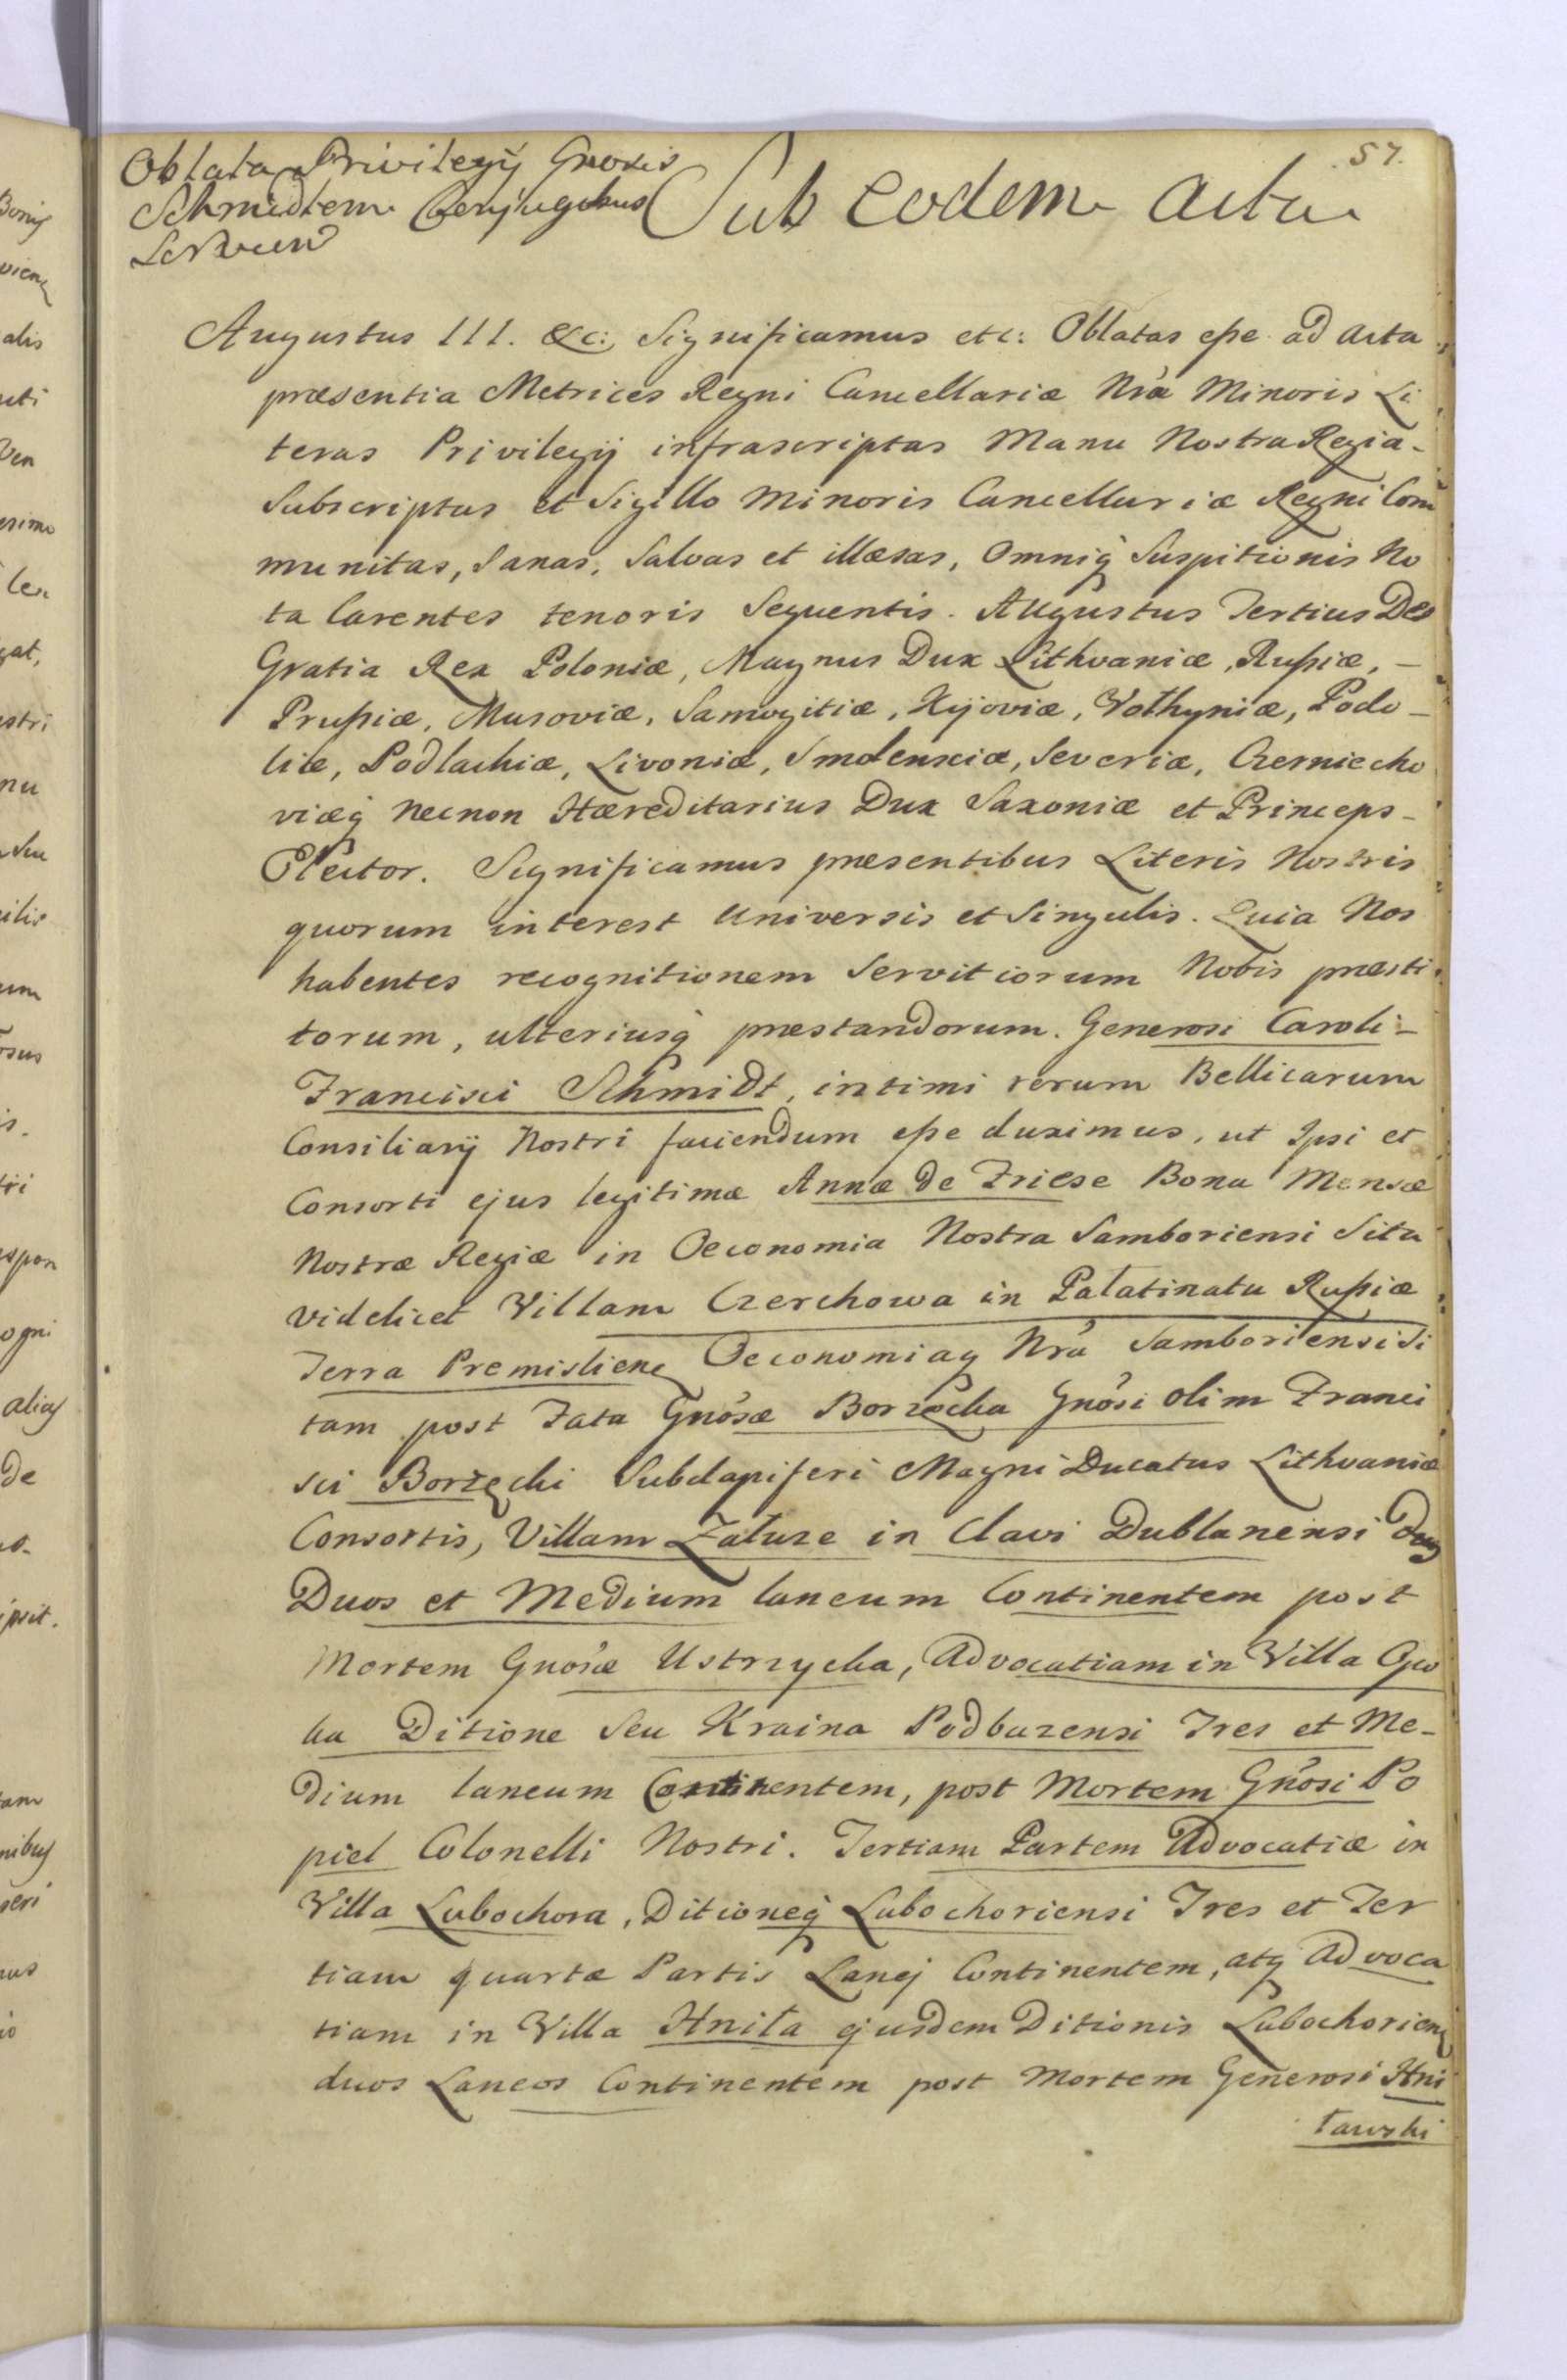 57.
Oblata Privilegÿ Gnosis
Schmidtem Conjugibus
Sub eodem actu
Augustus III. &c: Significamus etc: Oblatas eße ad Acta
præsentia Metrices Regni Cancellariæ Nrã Minoris Li
teras Privilegÿ infrascriptas Manu Nostra Regia-
Subscriptas et Sigillo Minoris Cancellariæ Regni Com
munitas, Sanas, Salvas et illæsas, Omniq̃ Suspitionis No
ta Carentes tenoris Sequentis. Augustus Tertius Dei
Gratia Rex Poloniæ, Magnus Dux Lithvaniæ, Rußiæ, -
Prußiæ, Masoviæ, Samogitiæ, Kijoviæ, Volhyniæ, Podo-
liæ, Podlachiæ, Livoniæ, Smolensciæ, Severiæ, Czerniecho
viæq̃ Necnon Hæreditarius Dux Saxoniæ et Princeps-
Elector. Significamus præsentibus Literis Nostris
quorum interest Universis et Singulis. Quia Nos
habentes recognitionem Servitiorum Nobis præsti
torum, ulteriusq̃ præstandorum. Generosi Caroli-
Francisci Schmidt, intimi rerum Bellicarum
Consiliarÿ Nostri faciendum eße duximus, ut Ipsi et
Consorti ejus legitimæ Annæ de Friese Bona Mensæ
Nostræ Regiæ in Oeconomia Nostra Samboriensi Sita
videlicet Villam Czerchowa in Palatinatu Rußiæ
Terra Premislieng Oeconomiaq Nrã Samboriensi Si
tam post Fata Gnõsæ Borzęcka Gnõsi olim Franci
sci Borzęcki Subdapiferi Magni Ducatus Lithvaniæ
Consortis, Villam Załuze in Clavi Dublanensi
Duos et Medium laneum Continentem post
Mortem Gnõsæ Ustrzycka, Advocatiam in Villa Opo
ka Ditione Seu Kraina Podbuzensi Tres et Me-
dium laneum Continentem, post Mortem Gnõsi Po
piel Colonelli Nostri. Tertiam Partem Advocatiæ in
Villa Lubochora, Ditioneq̃ Lubochoriensi Tres et Ter
tiam quartæ Partis Lanej Continentem, atq̃ Advoca
tiam in Villa Hniła ejusdem Ditionis Lubochorieng
duos Laneos Continentem post Mortem Generosi Hni
ławski